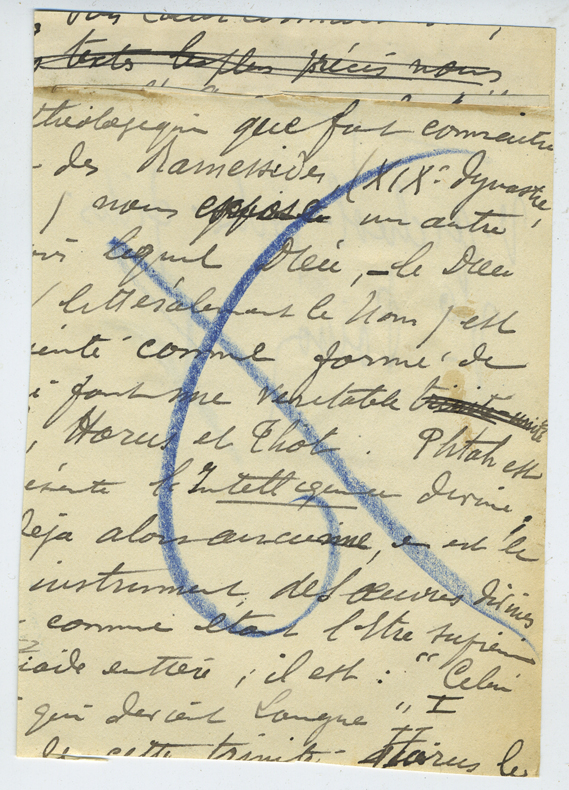 textes les plus précis nous
théologique que fait connaitre
des Ramessides, (XIXe dynastie,
) nous oppose un autre
lequel Dieu, – le Dieu
littéralement le Nom) est
comme formé de
font une veritable trinité – unité
, Horus et Thot. Phtah est
l'Intelligence divine;
déja alors est le
instrument, des œuvres divines
comme étant l'Etre suprême
entière ; il est : "Celui
qui devient Langue" I
de cette trinité. II Horus le